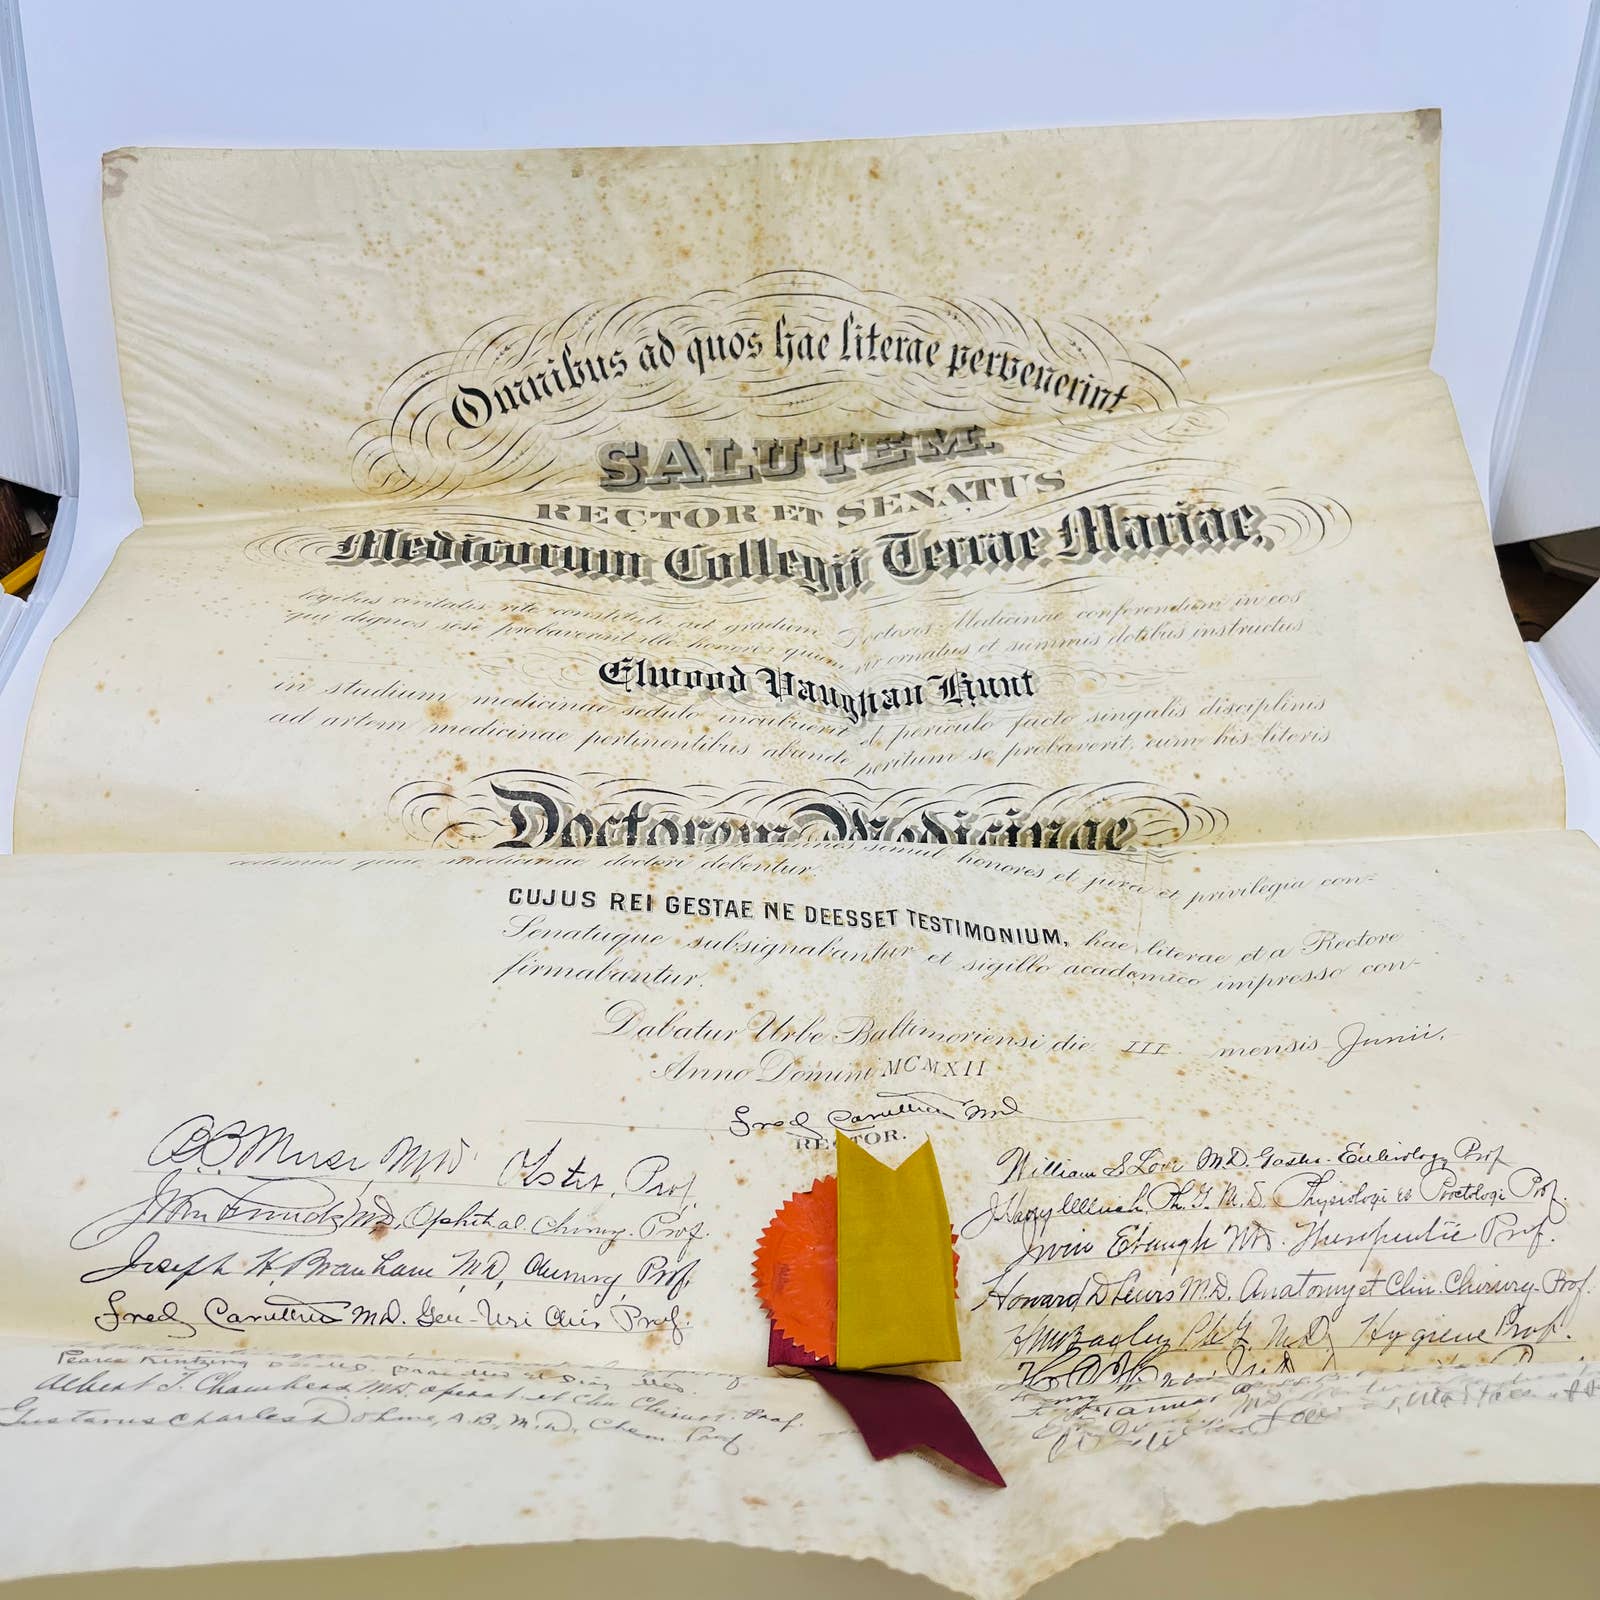 Omnibus ad quos hae literae pervenerint
SALUTEM.
RECTOR ET SENATUS
Medicorum Collegii Terrae Mariae,
legibus civitatis rite constituti ad gradum Doctoris Medicinae conferendum in eos
qui dignos sese probaverint illo honore quum ornatus et summis dotibus instructus
Elwood Vaughan Hunt
in studium medicinae sedulo incubuerit et periculo facto singulis disciplinis
ad artem medicinae pertinentibus abunde peritum se probaverit, eum his literis
Doctorem Medicinae
simul honores et jura et privilegia con-
medicinae doctori debentur.
CUJUS REI GESTAE NE DEESSET TESTIMONIUM, hae literae et a Rectore
Senatuque subsignabantur et sigillo academico impresso con-
firmabantur.
Dabatur Urbe Baltimoriensi die III mensis Junii,
Anno Domini MCMXII
Fred Caruthers MD
RECTOR.
M.D. Prof.
M.D. Ophthal. Chirurg. Prof.
Joseph H. Branham M.D. Prof.
Fred Caruthers M.D. Gen-Uri Prof.
Albert T. Chambers M.D. operat. et Clin Chirur. Prof.
Gustavus Charles Dohme, A.B., M.D., Chem. Prof
William S Love M.D. Gastro- Prof
J Harry Ullrich Ph. G. M.D. Physiologi et Proctologi Prof.
Irvin Ebaugh MD. Therapeutic Prof.
Howard D Lewis M.D. Anatomy et Clin. Chirurg. Prof.
Ph G. M.D. Hygiene Prof.